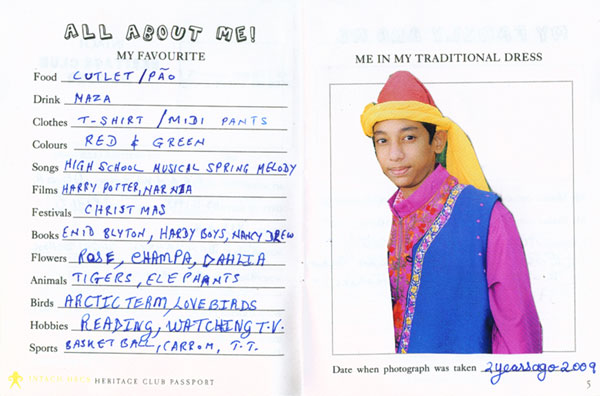 ALL ABOUT ME!
MY FAVOURITE
Food CUTLET/PÃO
Drink MAZA
Clothes T-SHIRT /MIDI PANTS
Colours RED & GREEN
Songs HIGH SCHOOL MUSICAL SPRING MELODY
Films HARRY POTTER, NARNIA
Festivals CHRISTMAS
Books ENID BLYTON, HARDY BOYS, NANCY DREW
Flowers ROSE, CHAMPA, DAHLIA
Animals TIGERS, ELEPHANTS
Birds ARCTIC TERM, LOVEBIRDS
Hobbies READING, WATCHING T.V.
Sports BASKET BALL, CARROM, T.T.
HERITAGE CLUB PASSPORT
ME IN MY TRADITIONAL DRESS
Date when photograph was taken 2yearsago-2009
5